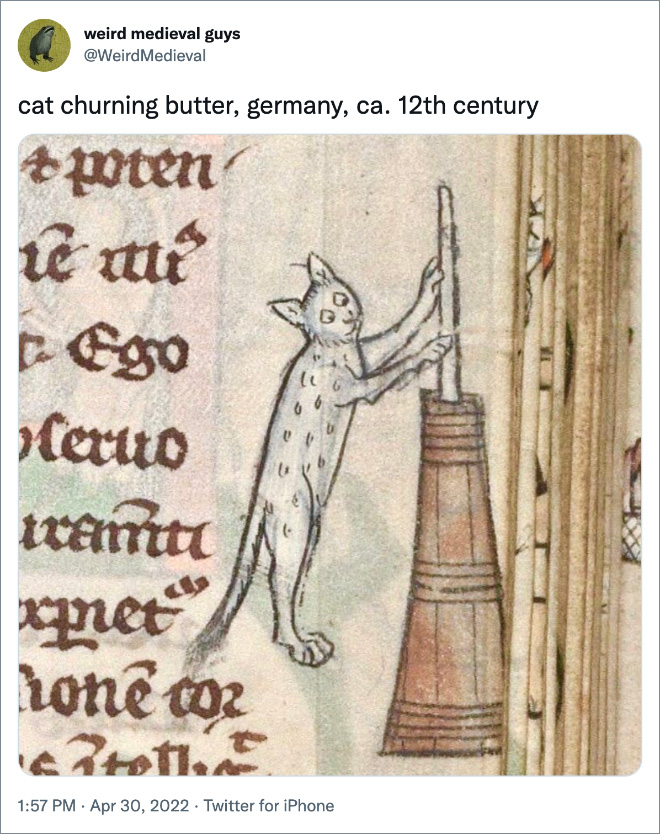 weird medieval guys
@WeirdMedieval
cat churning butter, germany, ca. 12th century
poten
Ego
seruo
1:57 PM · Apr 30, 2022 · Twitter for iPhone